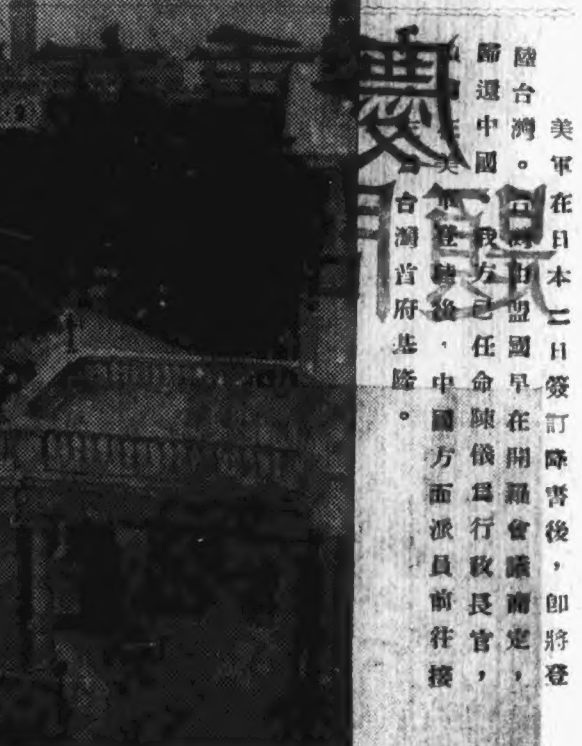 美軍在日本二日簽訂降書後，卽將登
陸台灣。台灣由盟國早在開羅會議商定，
歸還中國，我方已任命陳儀爲行政長官，
在美軍登陸後，中國方面派員前往接
台灣首府基隆。